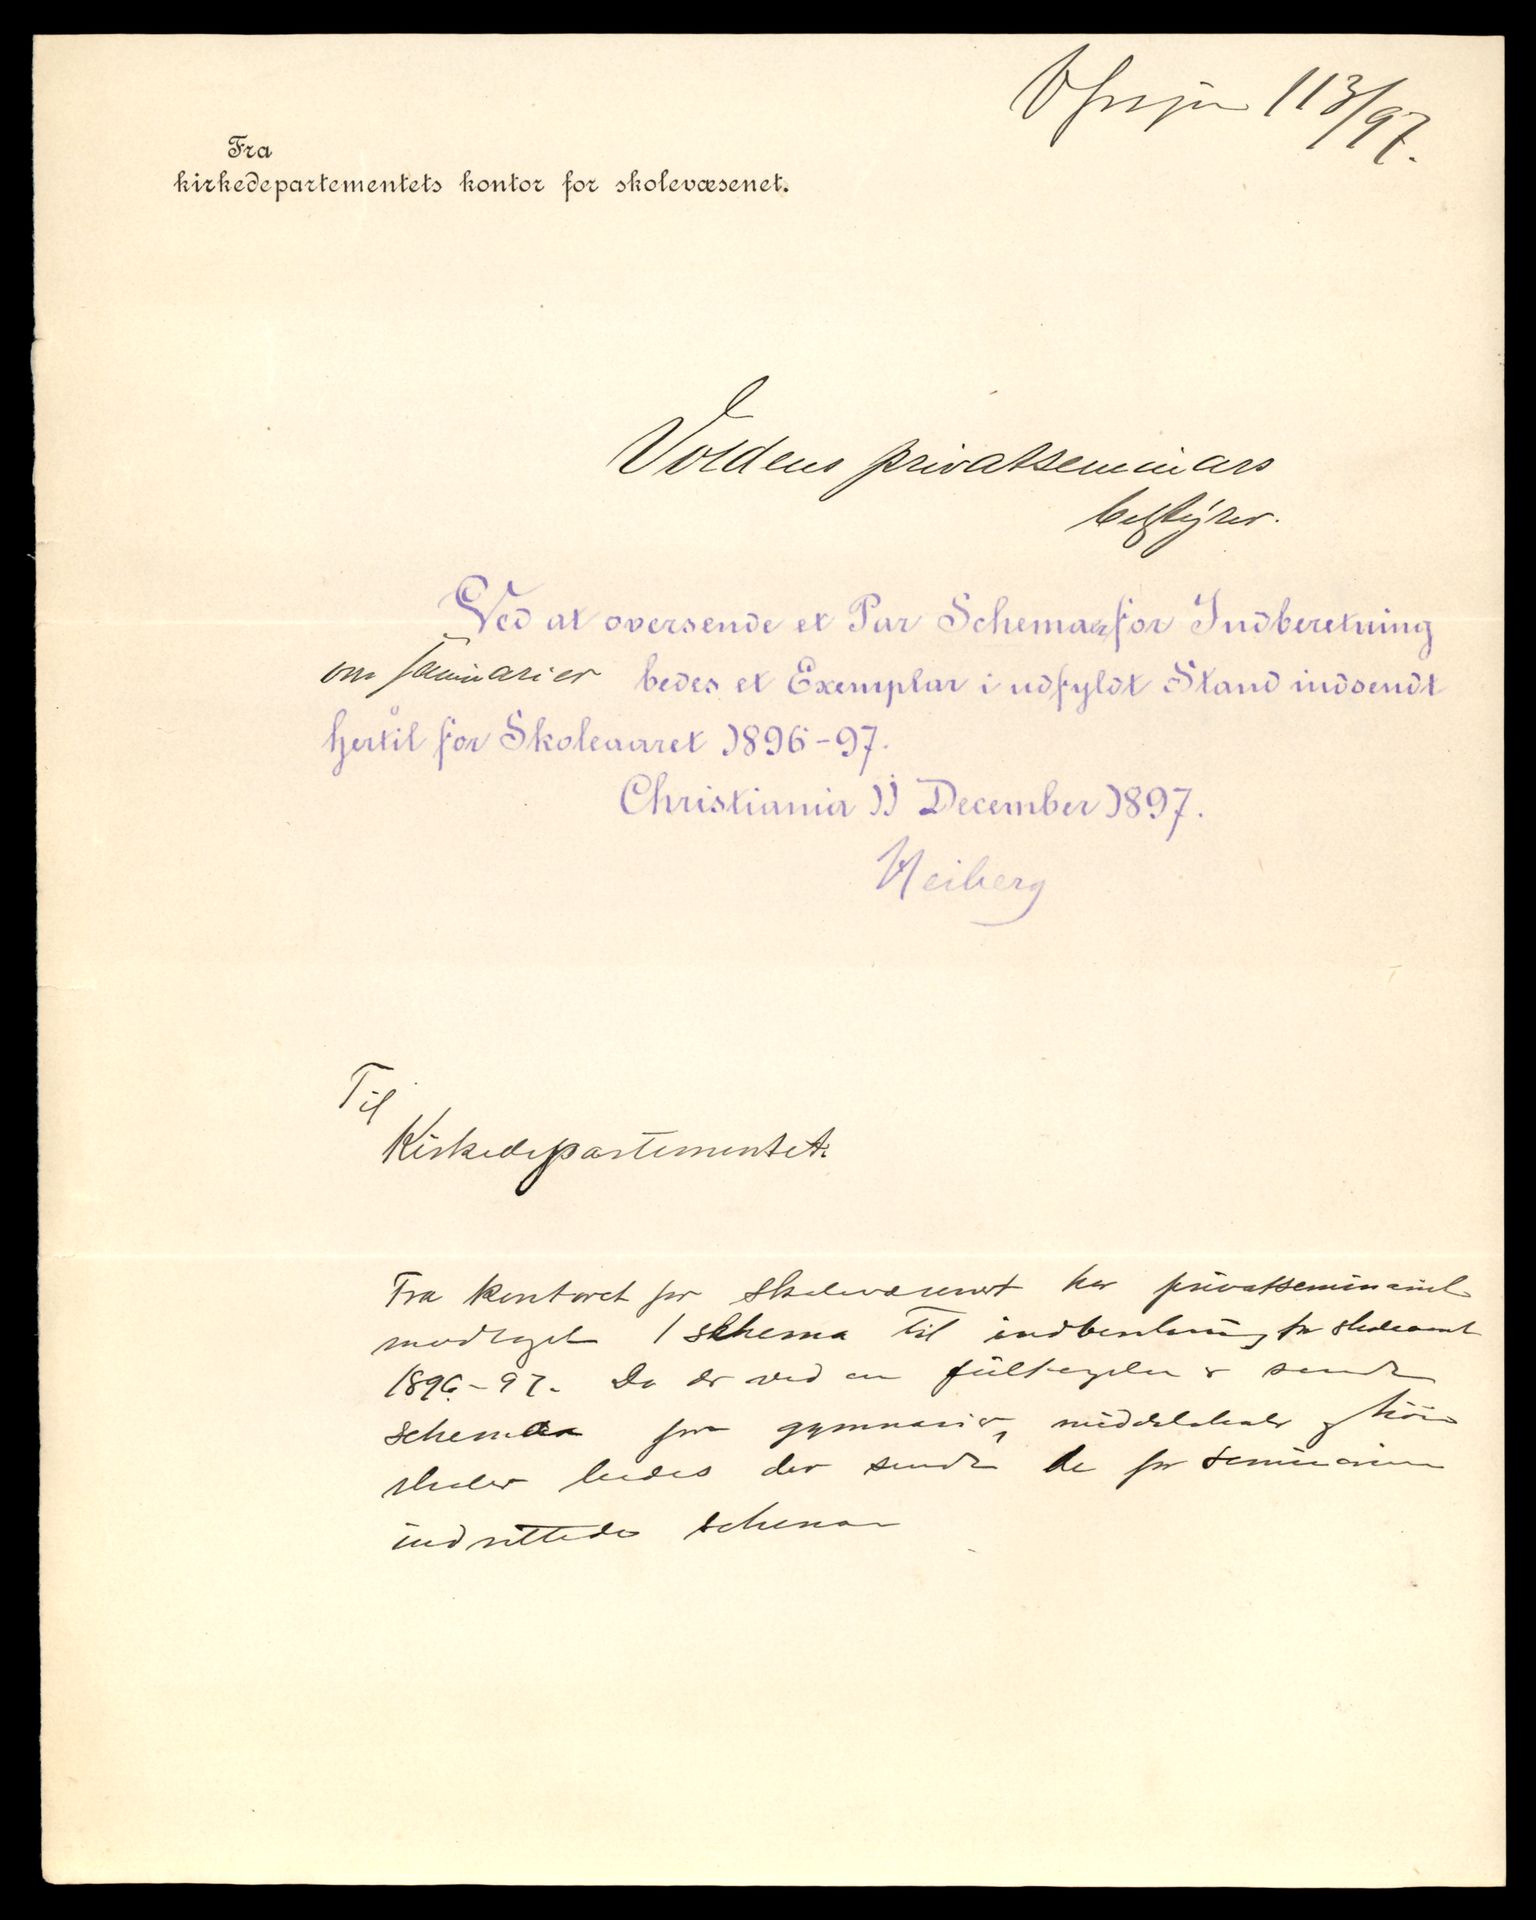 113/97.
Fra
kirkedepartementets kontor for skolevæsenet.
Voldens privatseminars
bestyrer.
Ved at oversende et Par Schemaer for Indberetning
om seminarier bedes et Exemplar i udfyldt Stand indsendt
hertil for Skoleaaret 1896-97.
Christiania 11 December 1897.
Heiberg
Til
Kirkedepartementet.
Fra kontoret for skolevæsenet har privatseminariet
modtaget 1 schema til indberetning for skoleaaret
1896-97. Da der ved en feiltagelse er sendt
schemaer for gymnasier, middelskoler og høiere
skoler bedes der sendt de for seminarierne
indrettede schemaer